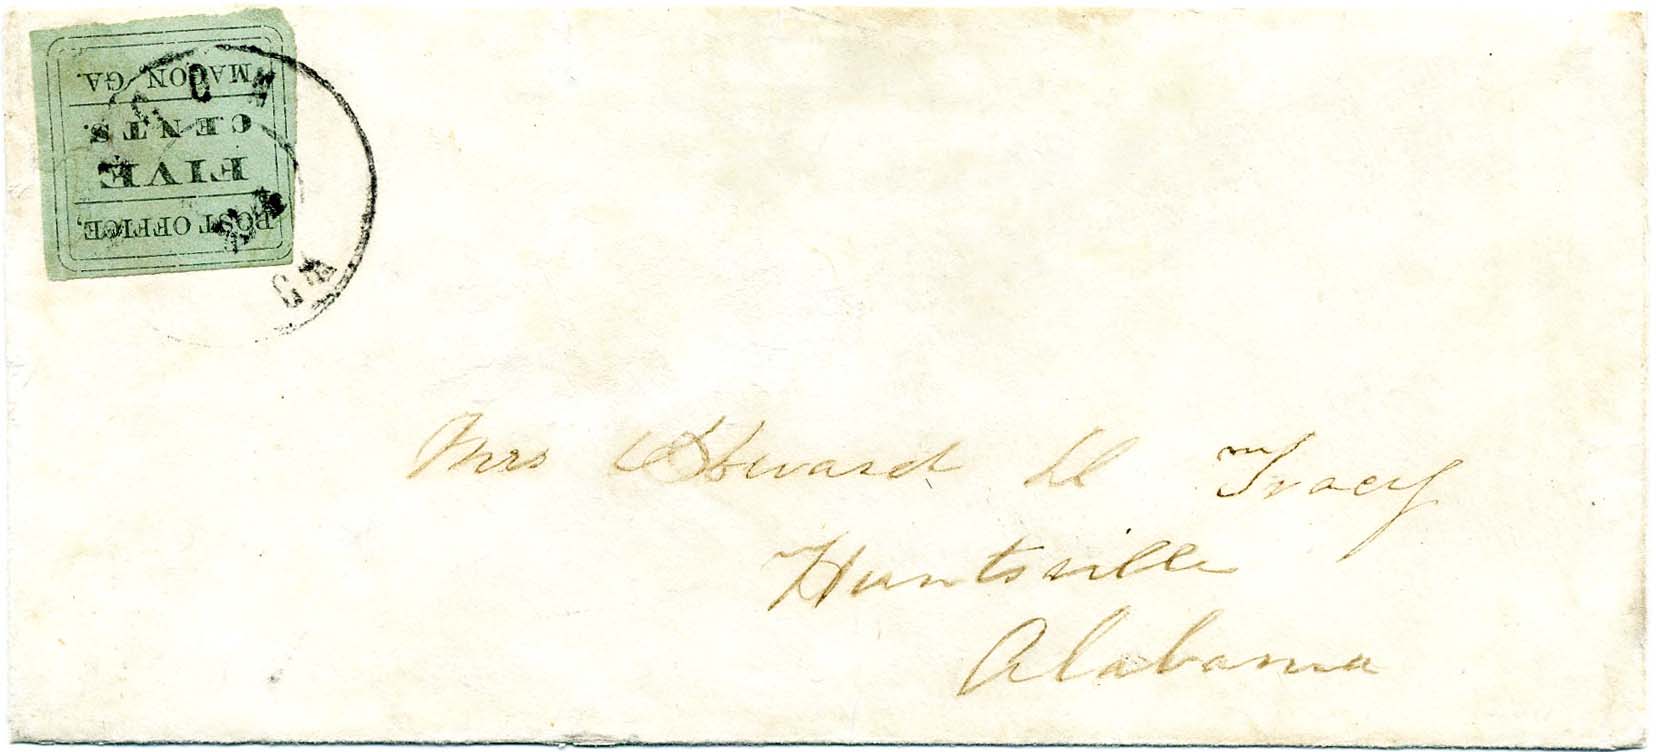 POST OFFICE,
FIVE
CENTS.
MACON GA.
GA
Mrs Edward D Tracy
Huntsville
Alabama